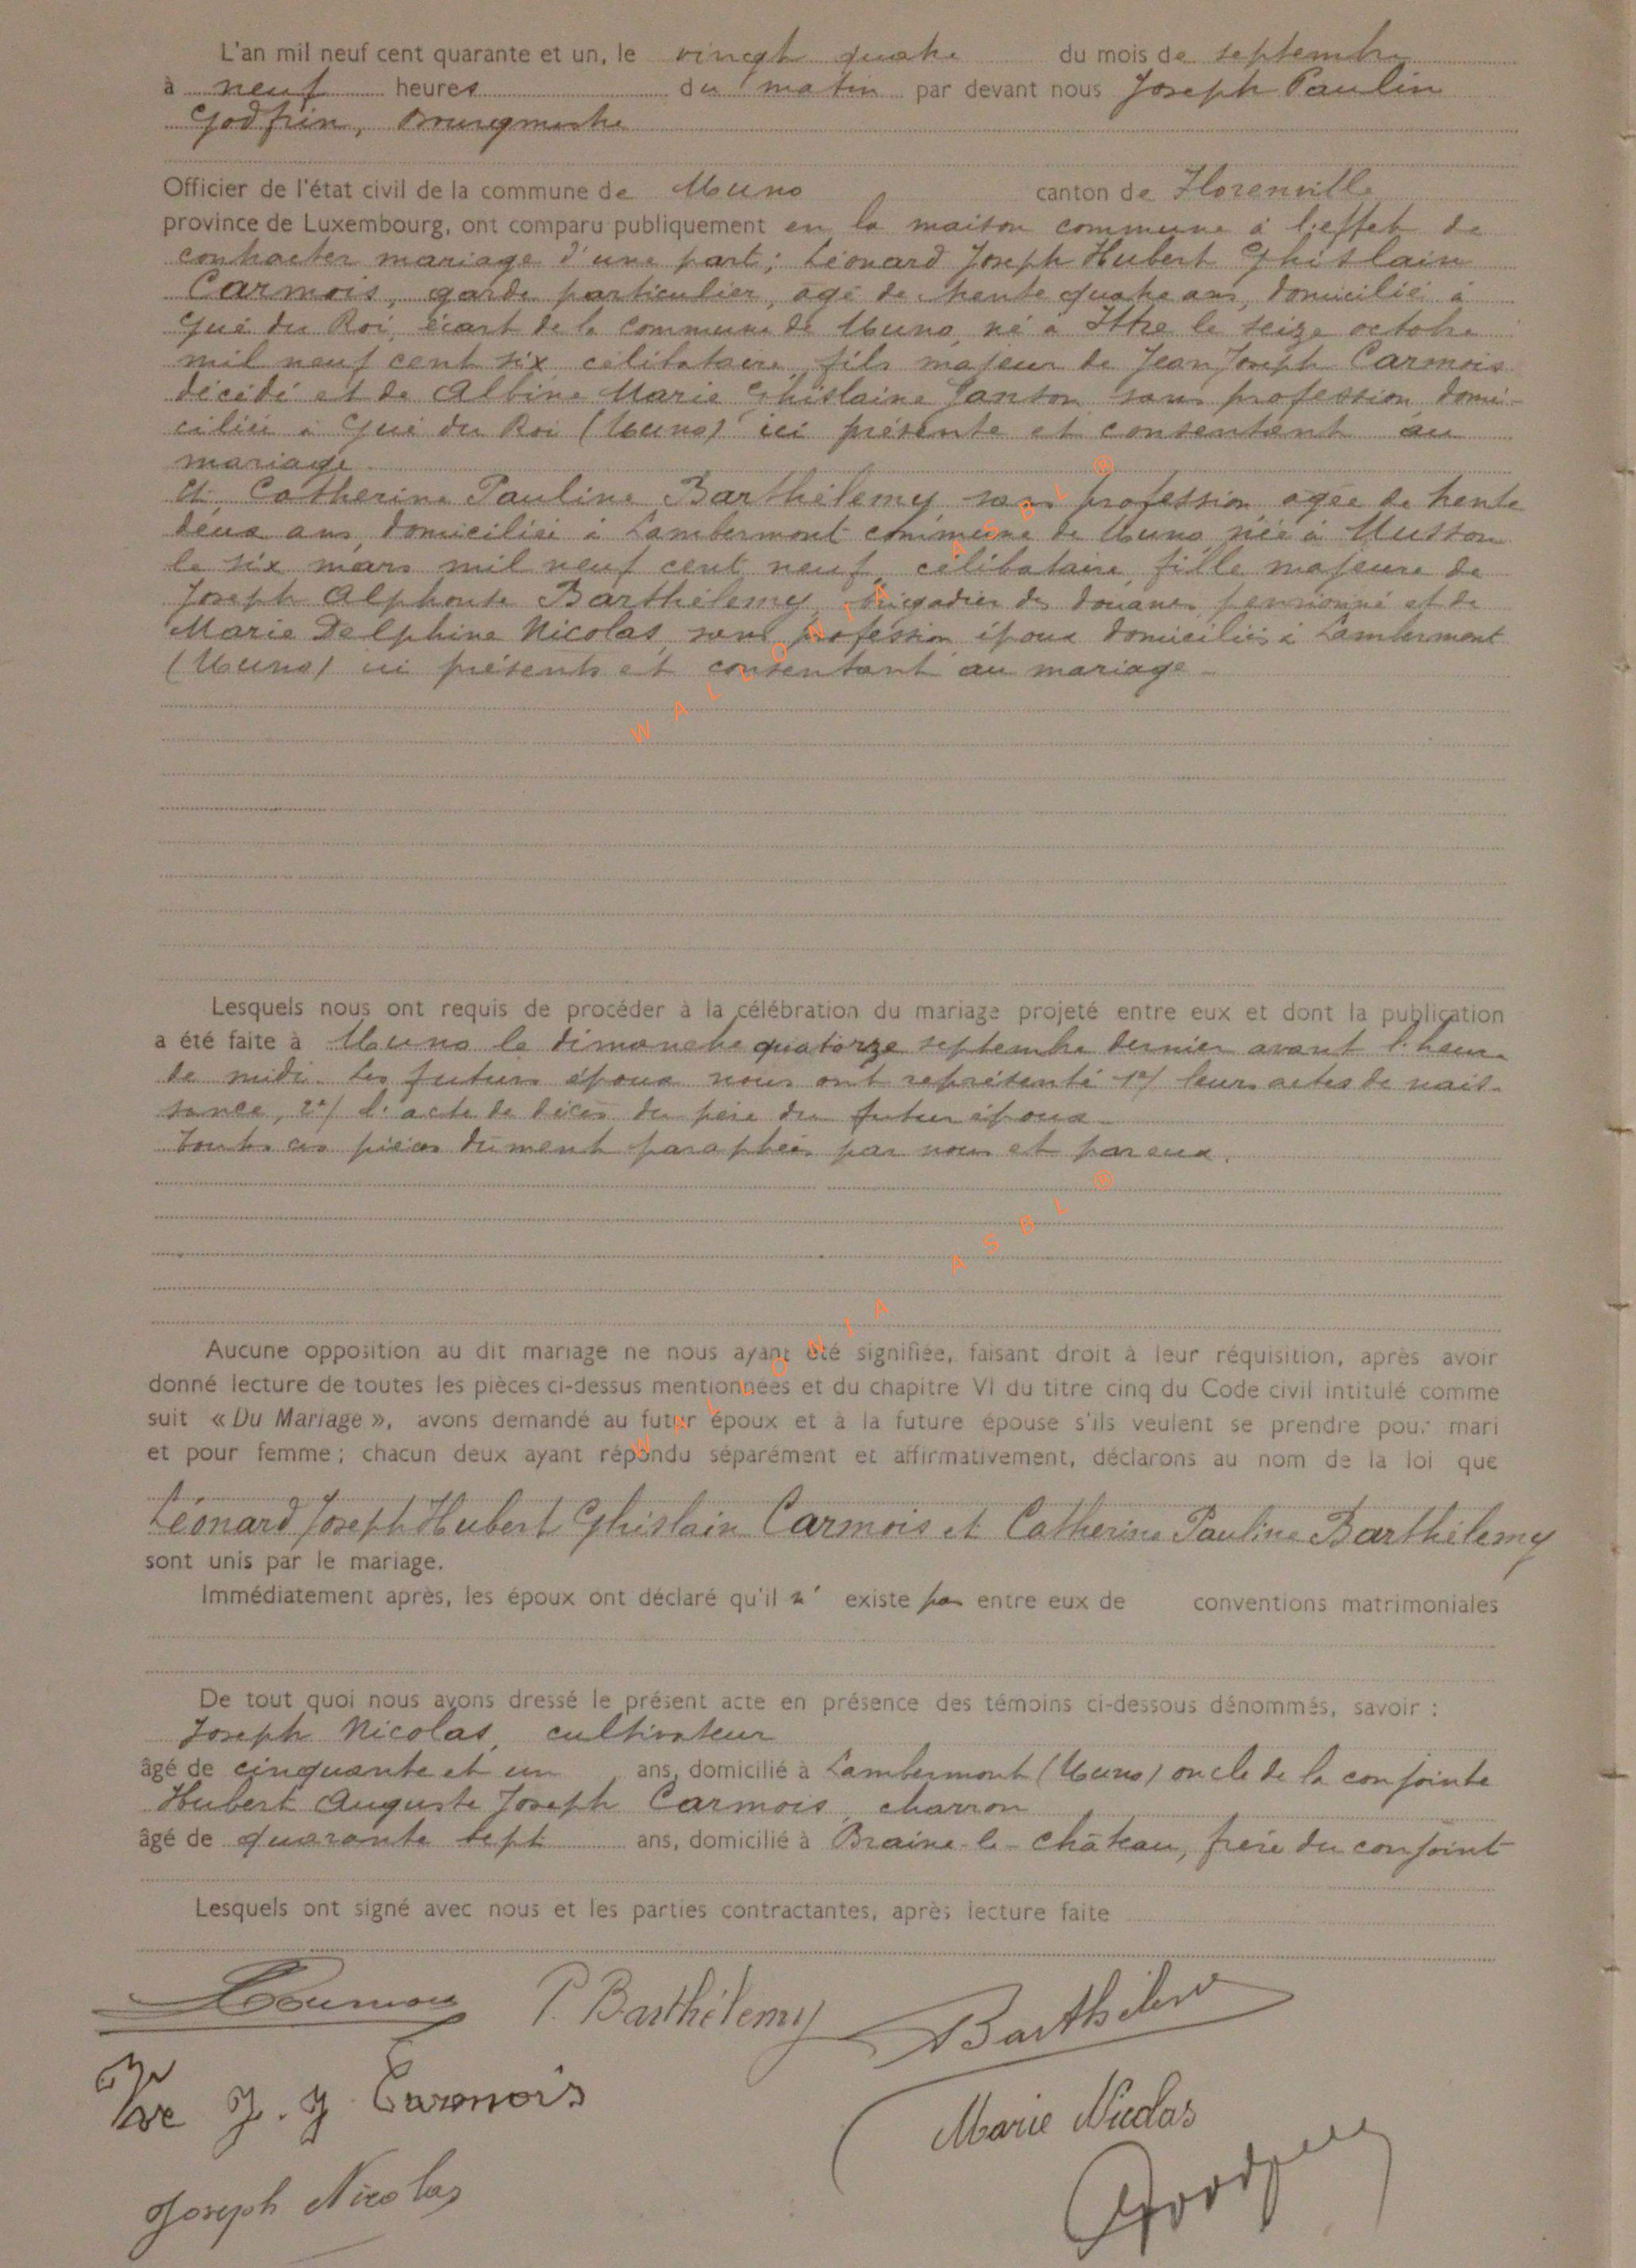 L'an mil neuf cent quarante et un, le vingt quatre du mois de septembre
à neuf heures du matin par devant nous Joseph Paulin
Godfrin, Bourgmestre
Officier de l'état civil de la commune de Muno canton de Florenville
province de Luxembourg, ont comparu publiquement en la maison commune à l'effet de
contracter mariage d'une part; Léonard Joseph Hubert Ghislain
Carmois, garde particulier, agé de trente quatre ans, domicilié à
Gué du Roi, écart de la commune de Muno, né à Ittre le seize octobre
mil neuf cent six, célibataire, fils majeur de Jean Joseph Carmois
décédé et de Albine Marie Ghislaine sans profession, domi-
ciliée à Gué du Roi (Muno) ici présente et consentant au
mariage
et Catherine Pauline Barthélemy sans profession, agée de trente
deux ans, domiciliée à Lambermont commune de Muno née à Musson
le six mars mil neuf cent neuf, célibataire, fille majeure de
Joseph Alphonse Barthélemy, brigadier des douanes pensionné et de
Marie Delphine Nicolas, sans profession, époux domiciliés à Lambermont
(Muno) ici présents et consentant au mariage -
Lesquels nous ont requis de procéder à la célébration du mariage projeté entre eux et dont la publication
a été faite à Muno le dimanche quatorze septembre dernier avant l'heure
de midi. Les futurs époux nous ont représenté 1°/ leurs actes de nais-
sance, 2°/ l'acte de décès du père du futur époux.
Toutes ces pièces dument paraphées par nous et par eux.
Aucune opposition au dit mariage ne nous ayant été signifiée, faisant droit à leur réquisition, après avoir
donné lecture de toutes les pièces ci-dessus mentionnées et du chapitre VI du titre cinq du Code civil intitulé comme
suit « Du Mariage », avons demandé au futur époux et à la future épouse s'ils veulent se prendre pour mari
et pour femme; chacun deux ayant répondu séparément et affirmativement, déclarons au nom de la loi que
Léonard Joseph Hubert Ghislain Carmois et Catherine Pauline Barthélemy
sont unis par le mariage.
Immédiatement après, les époux ont déclaré qu'il n' existe pas entre eux de conventions matrimoniales
De tout quoi nous avons dressé le présent acte en présence des témoins ci-dessous dénommés, savoir :
Joseph Nicolas, cultivateur
âgé de cinquante et un ans, domicilié à Lambermont (Muno) oncle de la conjointe
Hubert Auguste Joseph Carmois, charron
âgé de quarante sept ans, domicilié à Braine-le-Château, frère du conjoint
Lesquels ont signé avec nous et les parties contractantes, après lecture faite
P. Barthélemy
Barthélemy
Vve J. J Carmois
Marie Nicolas
Joseph Nicolas
WALLONIA ASBL ®
WALLONIA ASBL ®